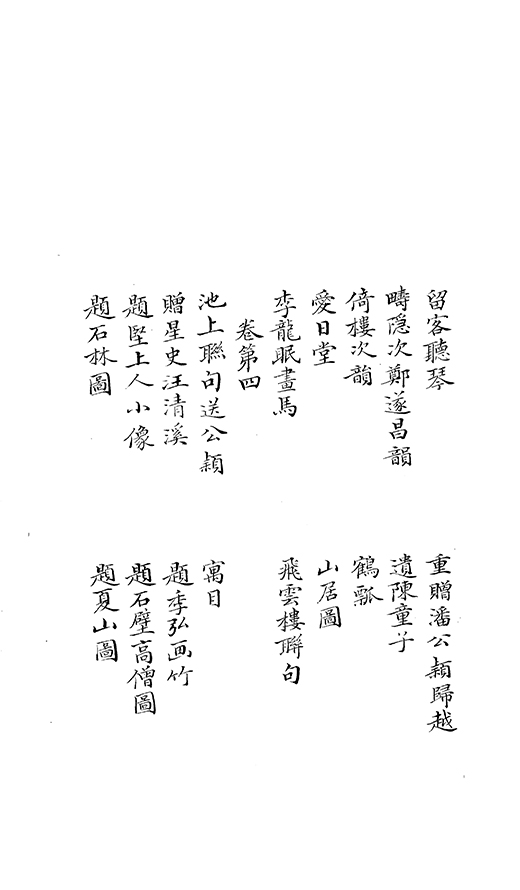 留客聽琴
重贈潘公穎歸越
疇隐次鄭遂昌韻
遺陳童子
倚樓次韻
鶴瓢
愛日堂
山居圖
李龍眠畫馬
飛雲樓聯句
卷第四
池上聮句送公穎
寓目
贈星史汪清溪
題季弘画竹
題堅上人小像
題石壁高僧圖
題石林圖
題夏山圖